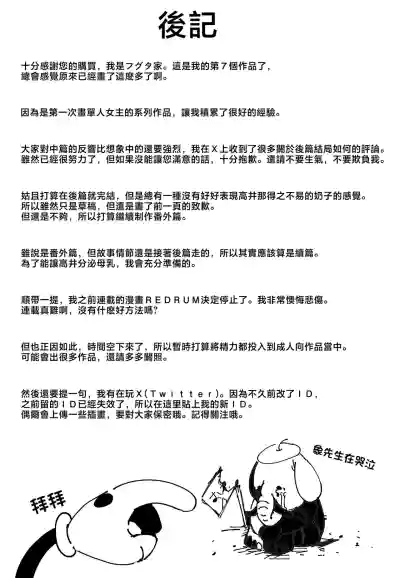 後記
十分感謝您的購買，我是フグタ家。這是我的第７個作品了，
總會感覺原來已經畫了這麽多了啊。
因為是第一次畫單人女主的系列作品，讓我積累了很好的經驗。
大家對中篇的反響比想象中的還要強烈，我在Ｘ上收到了很多關於後篇結局如何的評論。
雖然已經很努力了，但如果沒能讓您滿意的話，十分抱歉。還請不要生氣，不要欺負我。
姑且打算在後篇就完結，但是總有一種沒有好好表現高井那得之不易的奶子的感覺。
所以雖然只是草稿，但還是畫了前一頁的致歉。
但還是不夠，所以打算繼續制作番外篇。
雖說是番外篇，但故事情節還是接著後篇走的，所以其實應該算是續篇。
為了能讓高井分泌母乳，我會充分準備的。
順帶一提，我之前連載的漫畫ＲＥＤＲＵＭ決定停止了。我非常懊悔悲傷。
連載真難啊，沒有什麽好方法嗎?
但也正因如此，時間空下來了，所以暫時打算將精力都投入到成人向作品當中。
可能會出很多作品，還請多多關照。
然後還要提一句，我有在玩Ｘ(Ｔｗｉｔｔｅｒ)。因為不久前改了ＩＤ，
之前留的ＩＤ已經失效了，所以在這里貼上我的新ＩＤ。
偶爾會上傳一些插畫，要對大家保密哦。記得關注哦。
象先生在哭泣
拜拜